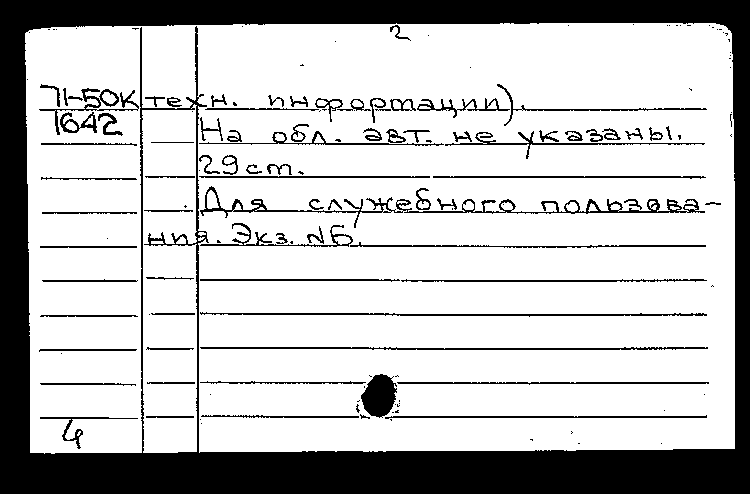 2
71-50К техн. информации).
1642 На обл. авт. не указаны.
29 cm.
Для служебного пользова-
ния. Экз. №Б.
4